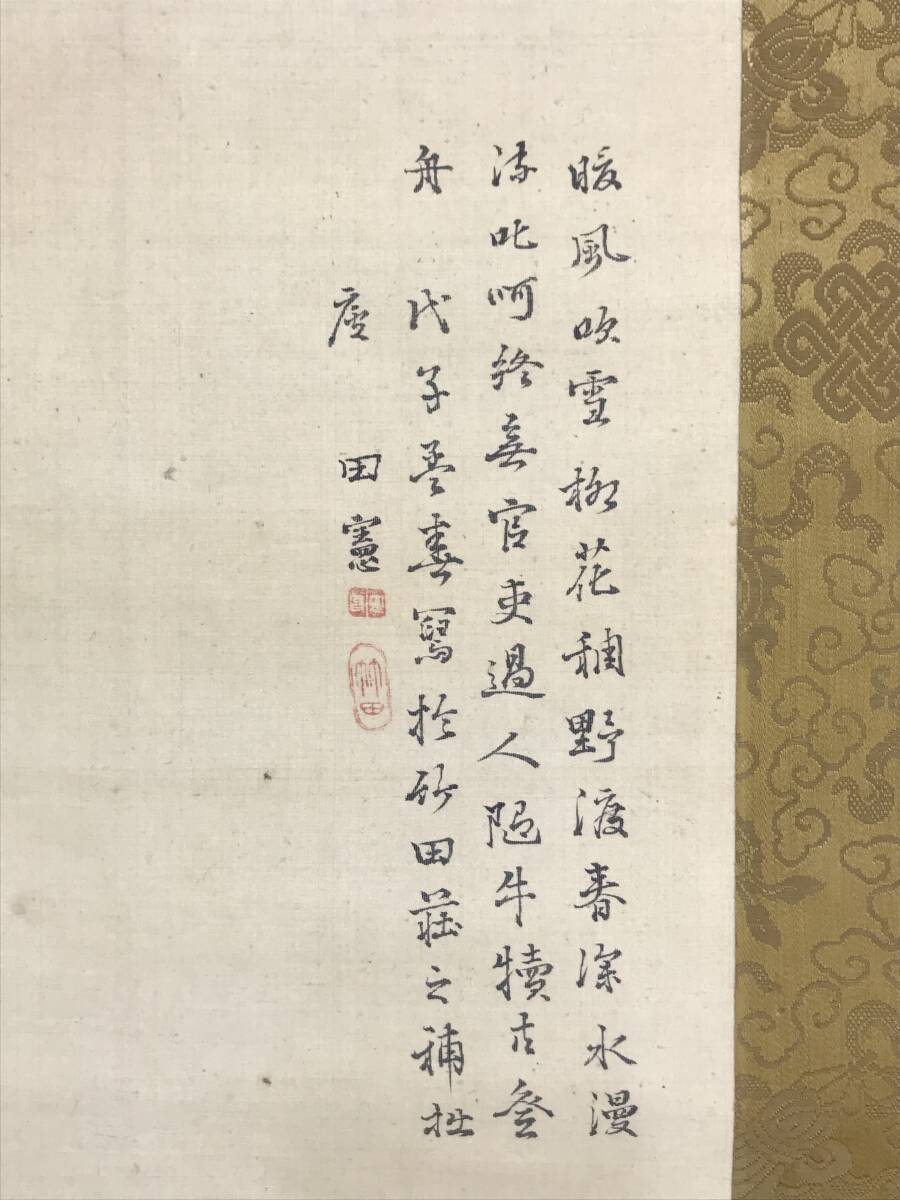 暖風吹雪柳花稠野渡春深水漫
流叱呵終無官吏過人随牛犢古登
舟 戊子孟春寫於竹田荘之補拙
廬 田憲
竹田